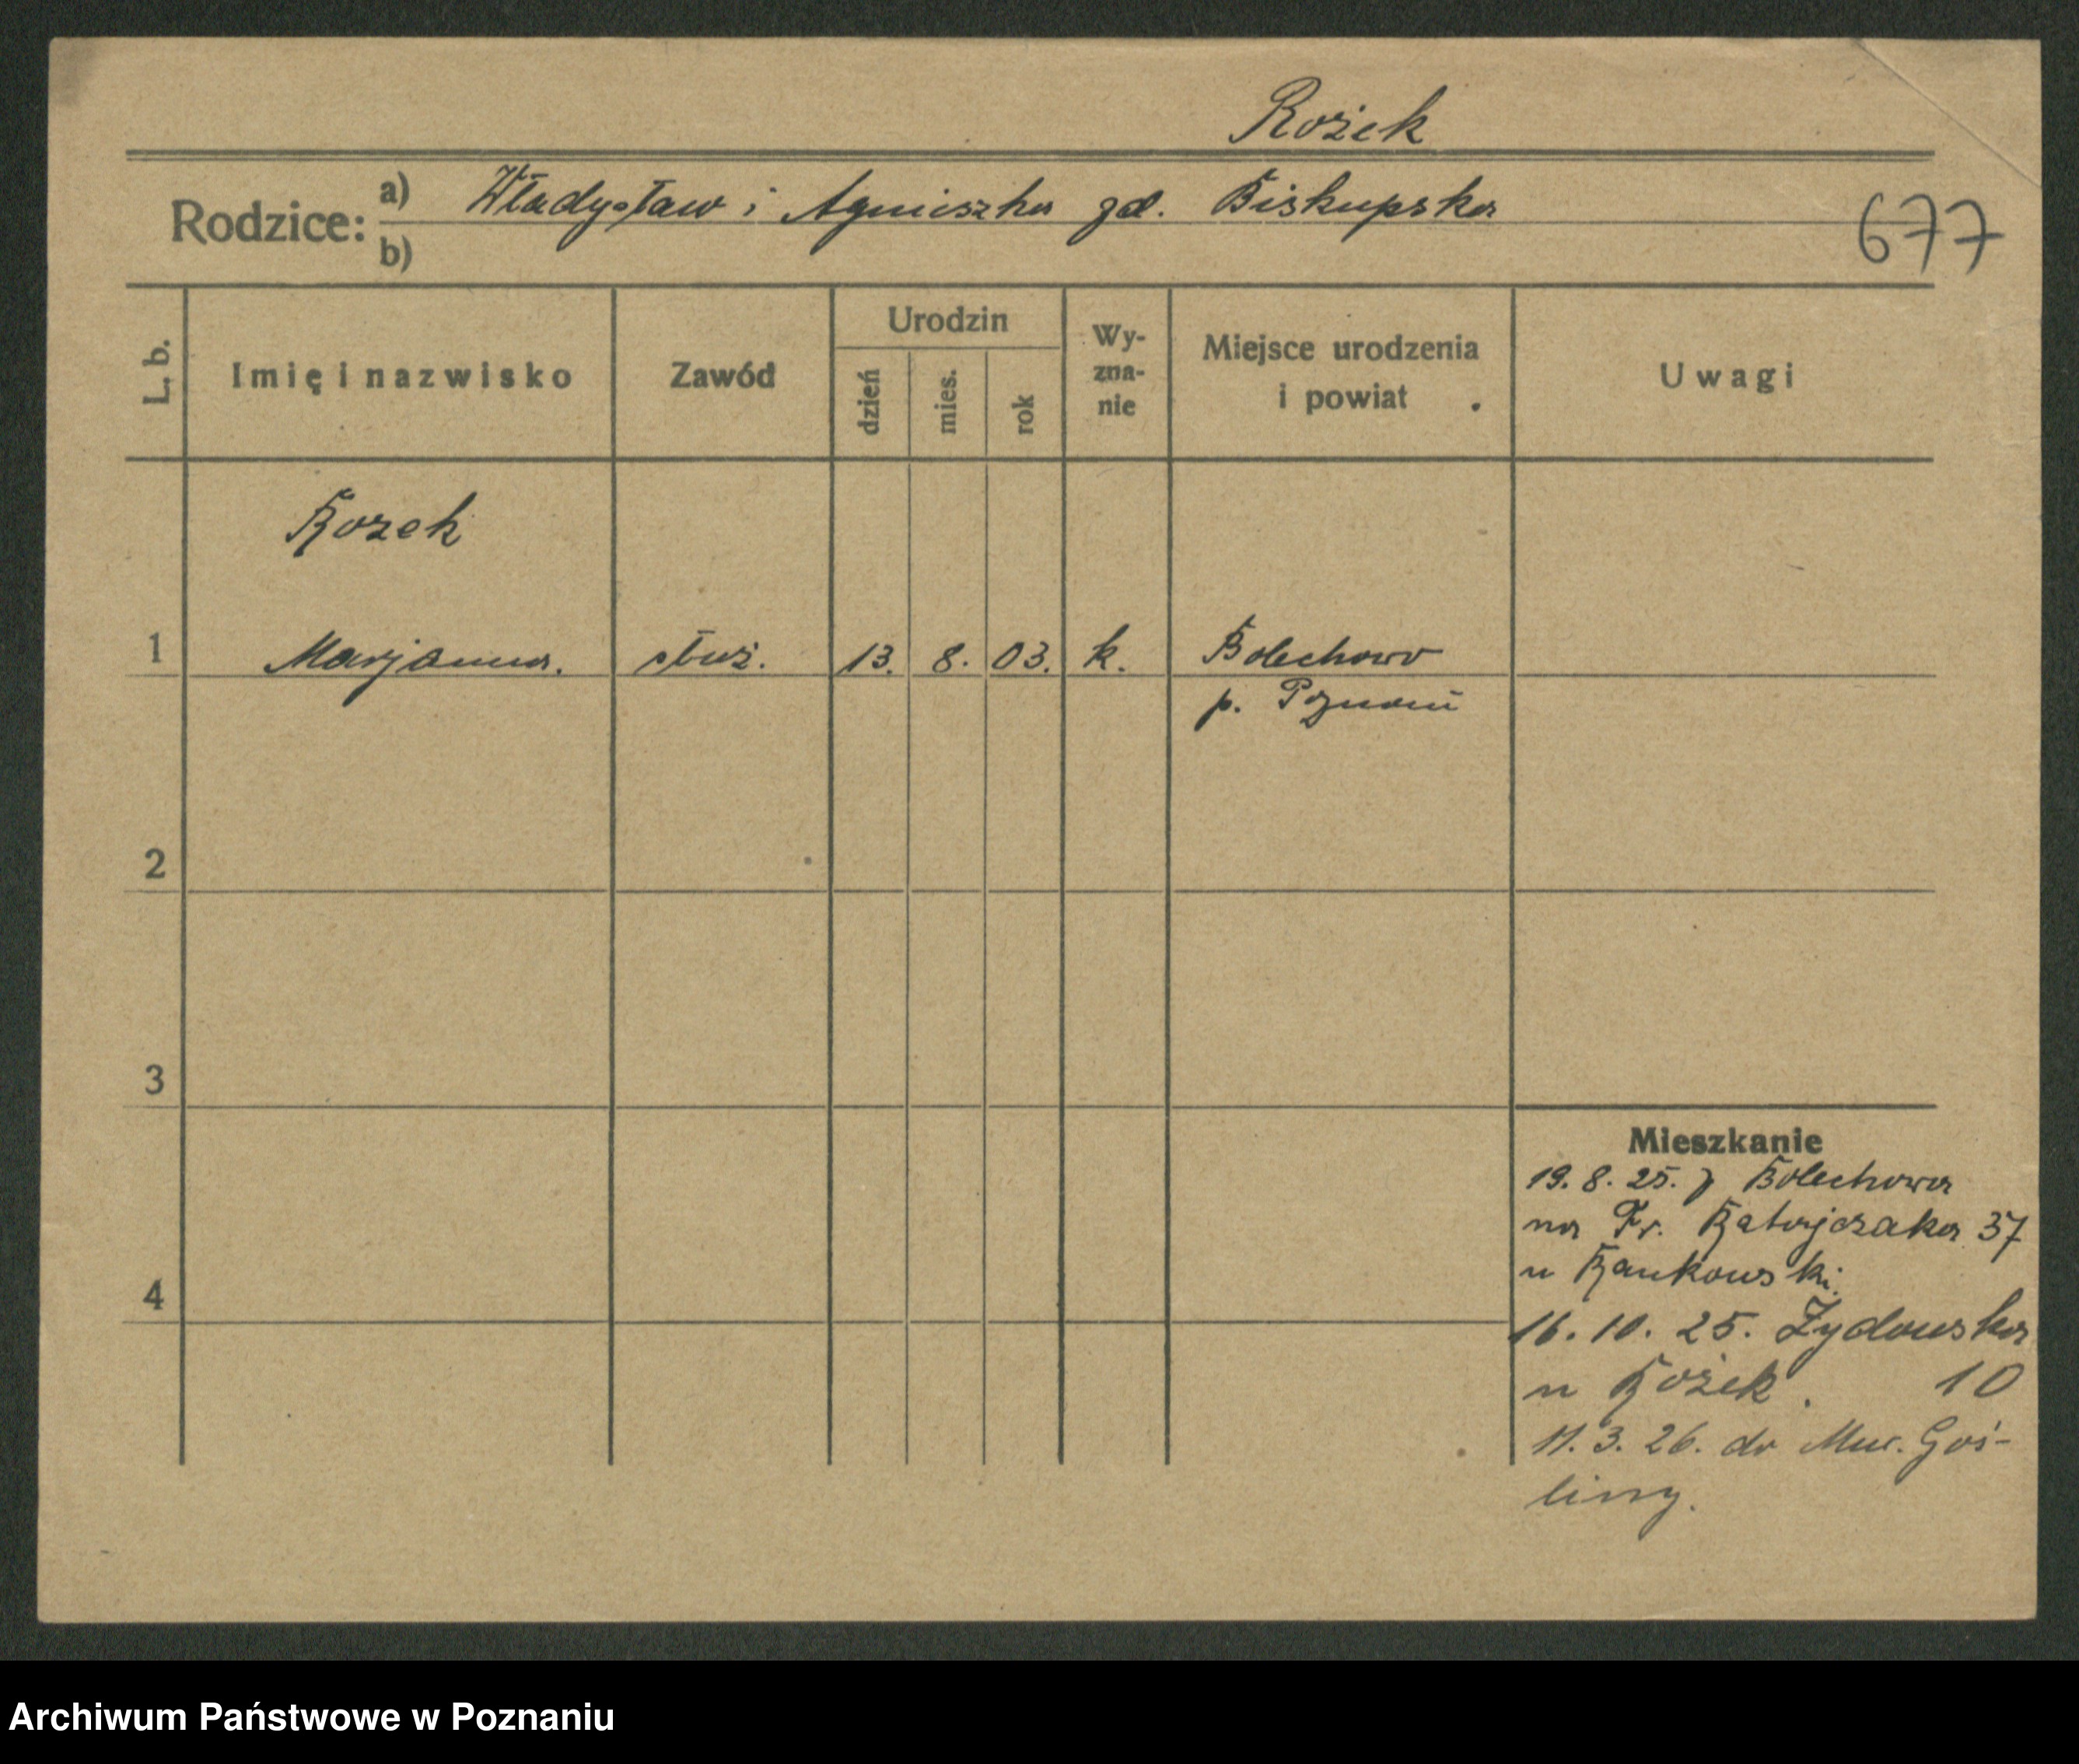 Rożek
Rodzice: a) Władysław i Agnieszka zd. Biskupska
b)
677
L. b. Imię i nazwisko Zawód Urodzin dzień mies. rok Wy-zna-nie Miejsce urodzenia i powiat Uwagi
Rozek
1 Marjanna. służ. 13. 8. 03. k. Bolechowo
p. Poznań
2
3
4
Mieszkanie
19. 8. 25. z Bolechowa
na Fr. Ratajczaka 37
u Rankowski.
16. 10. 25. Żydowska
u Rożek. 10
11. 3. 26. do Mur. Goś-
liny.
Archiwum Państwowe w Poznaniu